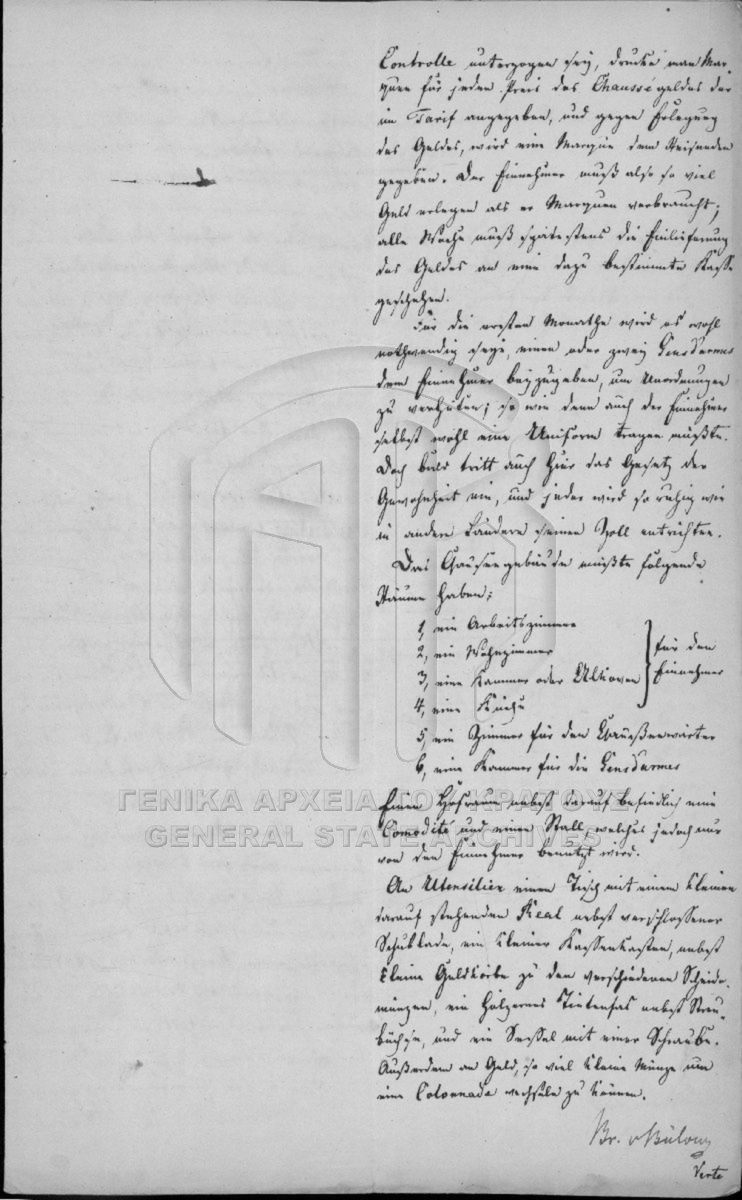 Controlle unterzogen sey, drucke man Mar-
quen für jeden Preis des Chausségeldes der
im Tarif angegeben, und gegen Erlegung
des Geldes, wird eine Marque dem Reisenden
gegeben. Der Einnehmer muß also so viel
Geld erlegen als er Marquen verbraucht;
alle Woche muß spätestens die Einlieferung
des Geldes an eine dazu bestimmte Kasse
geschehen.
Für die ersten Monathe wird es wohl
nothwendig seyn, einen oder zwey Gensdarmes
dem Einnehmer beyzugeben, um Unordnungen
zu verhüten; so wie denn auch der Einnehmer
selbst wohl eine Uniform tragen müßte.
Doch bald tritt auch hier das Gesetz der
Gewohnheit ein, und jeder wird so ruhig wie
in andern Ländern seinen Zoll entrichten.
Das Chausséegebäude müßte folgende
Räume haben:
1, ein Arbeitszimmer
2, ein Wohnzimmer
3, eine Kammer oder Alkoven
4, eine Küche
für den
Einnehmer
5, ein Zimmer für den Chausséewärter
6, eine Kammer für die Gensdarmes
Einen Hofraum nebst darauf befindlich eine
Comodité und einen Stall, welches jedoch nur
von den Einnehmer benutzt wird.
An Utensilien einen Tisch mit einem kleinen
darauf stehenden Real nebst verschlossener
Schublade, ein kleiner Kassenkasten, nebst
kleine Geldkörbe zu den verschiedenen Scheide-
münzen, ein hölzernes Tintenfas nebst Streu-
büchse, und ein Sessel mit einer Schraube.
Außerdem an Geld, so viel kleine Münze um
eine Colonnade wechseln zu können.
Br. v Bülow
Verte
ΓΕΝΙΚΑ ΑΡΧΕΙΑ ΤΟΥ ΚΡΑΤΟΥΣ
GENERAL STATE ARCHIVES